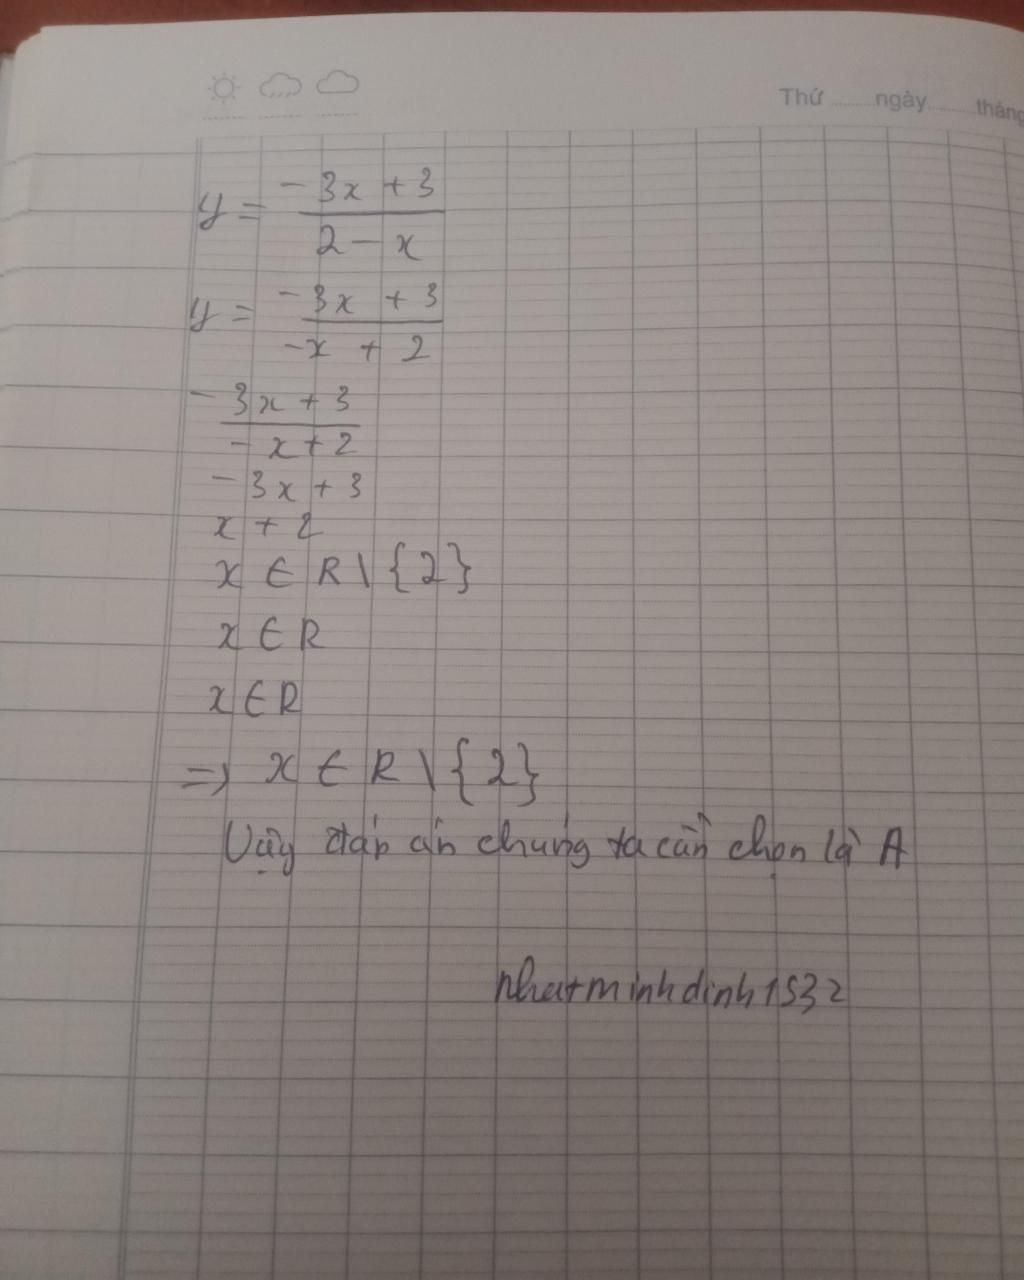 Thứ ........ ngày ........ tháng
y = -3x + 3 / 2 - x
y = -3x + 3 / -x + 2
-3x + 3 / -x + 2
-3x + 3
x + 2
x ∈ R \ {2}
x ∈ R
x ∈ R
=> x ∈ R \ {2}
Vậy đáp án chúng ta cần chọn là A
nhatminhdinh1532